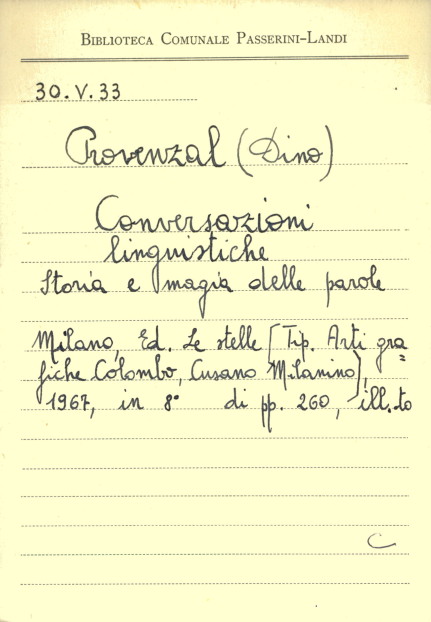 BIBLIOTECA COMUNALE PASSERINI-LANDI
30.V.33
Provenzal (Dino)
Conversazioni
linguistiche
Storia e magia delle parole
Milano, Ed. Le stelle [Tip. Arti gra=
fiche Colombo, Cusano Milanino],
1967, in 8° di pp. 260, ill.to
C